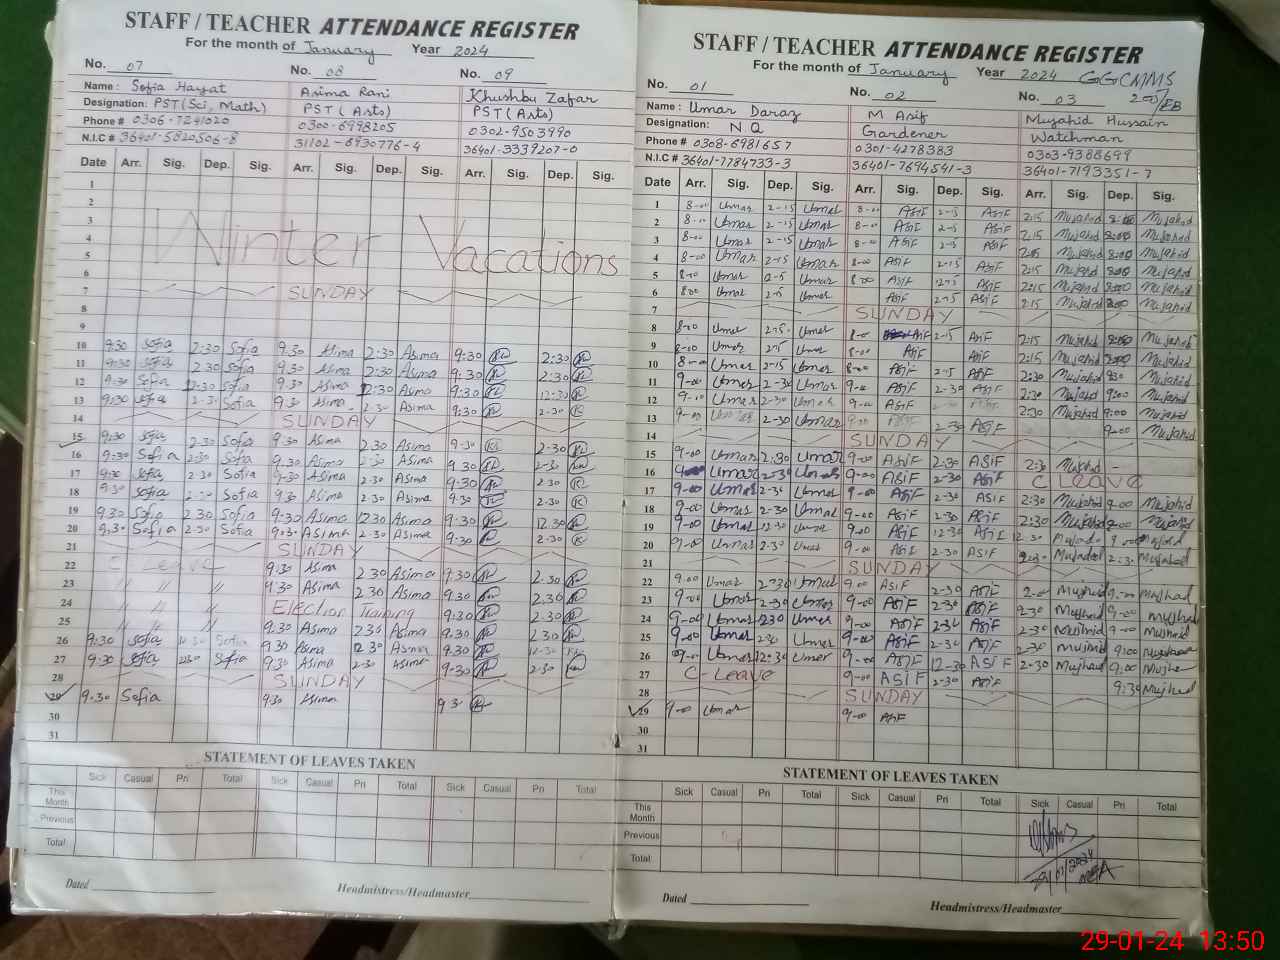 STAFF / TEACHER ATTENDANCE REGISTER
For the month of January Year 2024
No. 07 No. 08 No. 09
Name : Sofia Hayat Asima Rani Khushbu Zafar
Designation: PST (Sci, Math) PST (Arts) PST (Arts)
Phone # 0306-7241020 0300-6998205 0302-9503990
N.I.C # 36401-5820506-8 31102-6930776-4 36401-3339207-0
Date Arr. Sig. Dep. Sig. Arr. Sig. Dep. Sig. Arr. Sig. Dep. Sig.
1
2
3
4 Winter Vacations
5
6
7 SUNDAY
8
9
10 9:30 Sofia 2:30 Sofia 9:30 Asima 2:30 Asima 9:30 2:30
11 9:30 Sofia 2:30 Sofia 9:30 Asima 2:30 Asima 9:30 2:30
12 9:30 Sofia 12:30 Sofia 9:30 Asima 12:30 Asima 9:30 12:30
13 9:30 Sofia 2:30 Sofia 9:30 Asima 2:30 Asima 9:30 2:30
14 SUNDAY
15 9:30 Sofia 2:30 Sofia 9:30 Asima 2:30 Asima 9:30 2:30
16 9:30 Sofia 2:30 Sofia 9:30 Asima 2:30 Asima 9:30 2:30
17 9:30 Sofia 2:30 Sofia 9:30 Asima 2:30 Asima 9:30 2:30
18 9:30 Sofia 2:30 Sofia 9:30 Asima 2:30 Asima 9:30 2:30
19 9:30 Sofia 2:30 Sofia 9:30 Asima 12:30 Asima 9:30 12:30
20 9:30 Sofia 2:30 Sofia 9:30 Asima 2:30 Asima 9:30 2:30
21 SUNDAY
22 C Leave 9:30 Asima 2:30 Asima 9:30 2:30
23 // // // 9:30 Asima 2:30 Asima 9:30 2:30
24 // // // Election Training 9:30 2:30
25 // // // 9:30 Asima 2:30 Asima 9:30 2:30
26 9:30 Sofia Sofia 9:30 Asima 12:30 Asima 9:30
27 9:30 Sofia 2:30 Sofia 9:30 Asima 2:30 Asima 9:30 2:30
28 SUNDAY
29 9:30 Sofia 9:30 Asima 9:30
30
31
STATEMENT OF LEAVES TAKEN
Sick Casual Pri Total Sick Casual Pri Total Sick Casual Pri Total
This Month
Previous
Total
Dated Headmistress/Headmaster
STAFF / TEACHER ATTENDANCE REGISTER
For the month of January Year 2024 GGCMMS
No. 01 No. 02 No. 03
Name : Umar Daraz M Asif Mujahid Hussain
Designation: N Q Gardener Watchman
Phone # 0308-6981657 0301-4278383 0303-9388699
N.I.C # 36401-7784733-3 36401-7694541-3 36401-7193351-7
Date Arr. Sig. Dep. Sig. Arr. Sig. Dep. Sig. Arr. Sig. Dep. Sig.
1 8-00 Umar 2-15 Umar 8-00 ASiF 2-15 ASiF 2:15 Mujahid 8:00 Mujahid
2 8-00 Umar 2-15 Umar 8-00 ASiF 2-15 ASiF 2:15 Mujahid 8:00 Mujahid
3 8-00 Umar 2-15 Umar 8-00 ASiF 2-15 ASiF 2:15 Mujahid 8:00 Mujahid
4 8-00 Umar 2-15 Umar 8-00 ASiF 2-15 ASiF 2:15 Mujahid 8:00 Mujahid
5 8-00 Umar Umar 8-00 ASiF 2-15 ASiF 2:15 Mujahid 8:00 Mujahid
6 8-00 Umar Umar ASiF 2-15 ASiF 2:15 Mujahid 8:00 Mujahid
7 SUNDAY
8 8-00 Umar 2-15 Umar 8-00 ASiF 2-15 ASiF 2:15 Mujahid 8:00 Mujahid
9 8-00 Umar Umar 8-00 ASiF ASiF 2:15 Mujahid Mujahid
10 8-00 Umar 2-15 Umar ASiF 2-15 ASiF 2:15 Mujahid 8:00 Mujahid
11 9-00 Umar 2-30 Umar 9-00 ASiF 2-30 ASiF 2:30 Mujahid 9:30 Mujahid
12 9-00 Umar 2-30 Umar 9-00 ASiF 2:30 Mujahid 9:00 Mujahid
13 9-00 Umar 2-30 Umar ASiF 2-30 ASiF 2:30 Mujahid 9:00 Mujahid
14 SUNDAY 9-00 Mujahid
15 9-00 Umar 2:30 Umar 9-00 ASiF 2:30 ASiF 2:30 Mujahid -
16 Umar 2-30 Umar 9-00 ASiF 2-30 ASiF C Leave
17 9-00 Umar 2-30 Umar 9-00 ASiF 2-30 ASiF 2:30 Mujahid 9-00 Mujahid
18 9-00 Umar 2-30 Umar 9-00 ASiF 2-30 ASiF 2:30 Mujahid 9-00 Mujahid
19 9-00 Umar 12-30 Umar 9-00 ASiF 12-30 ASiF 12:30 9-00
20 9-00 Umar 2-30 Umar 9-00 ASiF 2-30 ASiF 2:30
21 SUNDAY
22 9-00 Umar 2-30 Umar 9-00 ASiF 2-30 ASiF 9-00
23 9-00 Umar 2-30 Umar 9-00 ASiF 2-30 ASiF 2-30 9-00
24 9-00 Umar 2-30 Umar 9-00 ASiF 2-30 ASiF 2-30 9-00
25 9-00 Umar 2-30 Umar 9-00 ASiF 2-30 ASiF 2-30 9:00
26 9-00 Umar 12-30 Umar 9-00 ASiF 12-30 ASiF 2-30 9:00
27 C-Leave 9-00 ASiF 2-30 ASiF 9:30
28 SUNDAY
29 9-00 Umar 9-00 ASiF
30
31
STATEMENT OF LEAVES TAKEN
Sick Casual Pri Total Sick Casual Pri Total Sick Casual Pri Total
This Month
Previous
Total
29/01/2024
Dated Headmistress/Headmaster
29-01-24 13:50